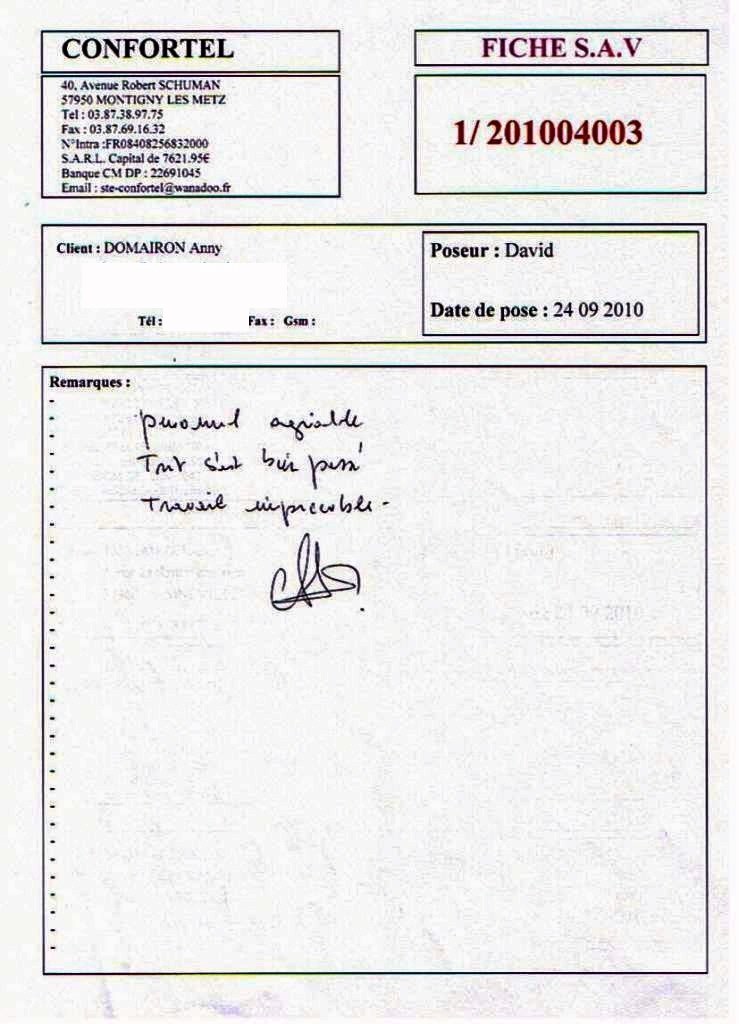 CONFORTEL
FICHE S.A.V
40, Avenue Robert SCHUMAN
57950 MONTIGNY LES METZ
Tel : 03.87.38.97.75
Fax : 03.87.69.16.32
N°Intra :FR08408256832000
S.A.R.L. Capital de 7621.95€
Banque CM DP : 22691045
Email : ste-confortel@wanadoo.fr
1/ 201004003
Client : DOMAIRON Anny
Poseur : David
Tél : Fax : Gsm :
Date de pose : 24 09 2010
Remarques :
personnel agréable
Tout s'est bien passé
Travail impeccable -